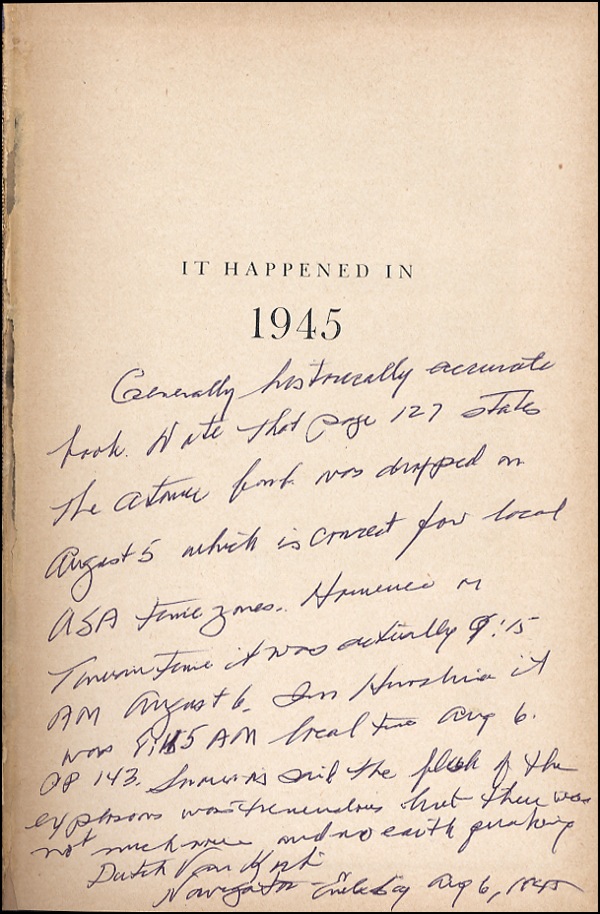 IT HAPPENED IN
1945
Generally historically accurate
book. Note that page 127 states
the atomic bomb was dropped on
August 5 which is correct for local
USA time zones. However on
Tinian time it was actually 9:15
AM August 6. In Hiroshima it
was 8:15 AM local time Aug 6.
P 143. said the flash of the
explosions was tremendous but there was
not much noise and no earth quaking
Dutch Van Kirk
Navigator - Enola Gay Aug 6, 1945